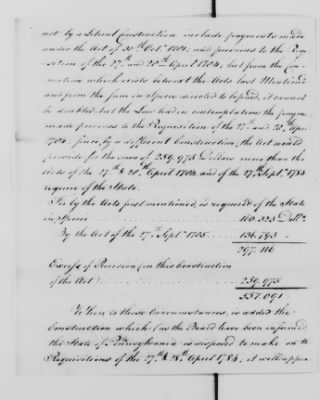 not by a literal Construction include payments made
under the Act of 30th Octr. 1781; and previous to the Requi-
sition of the 27th and 28th April 1784, but from the Con-
nection which exists between the Acts last Mentioned
and from the sum in Specie directed to be paid, it cannot
be doubted, but the Law had in contemplation the paym
made previous to the Requisition of the 27th and 28th Apr
1784 since, by a different Construction, the Act would
provide for the sum of 259.975 Dollars more than the
Acts of the 27th & 28th April 1784, and of the 27th Septr. 1785
require of the State.
For by the Acts first mentioned, is required of the State
in Specie 160.323 Dolls.
By the Act of the 27th Septr. 1785 136.793
297.116
Excess of Provision (on this Construction
of the Act) 259.975
557.091
When to these Circumstances, is added the
Construction which (as the Board have been informed
the State of Pennsylvania is disposed to make on the
Requisitions of the 27th & 28th April 1784; it will appea